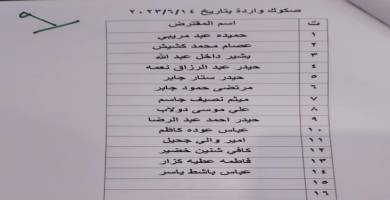 صكوك واردة بتاريخ ٢٠٢٣/٦/١٤
ت اسم المقترض
١ حميده عبد مريبي
٢ عصام محمد كشيش
٣ بشير داخل عبد الله
٤ حيدر عبد الرزاق نعمه
٥ حيدر ستار جابر
٦ مرتضى حمود جابر
٧ ميثم نصيف جاسم
٨ علي موسى دولاب
٩ حيدر احمد عبد الرضا
١٠ عباس عوده كاظم
١١ امير والي جحيل
١٢ كافي شنين خضير
١٣ فاطمه عطيه كزار
١٤ عباس باشط ياسر
١٥
١٦